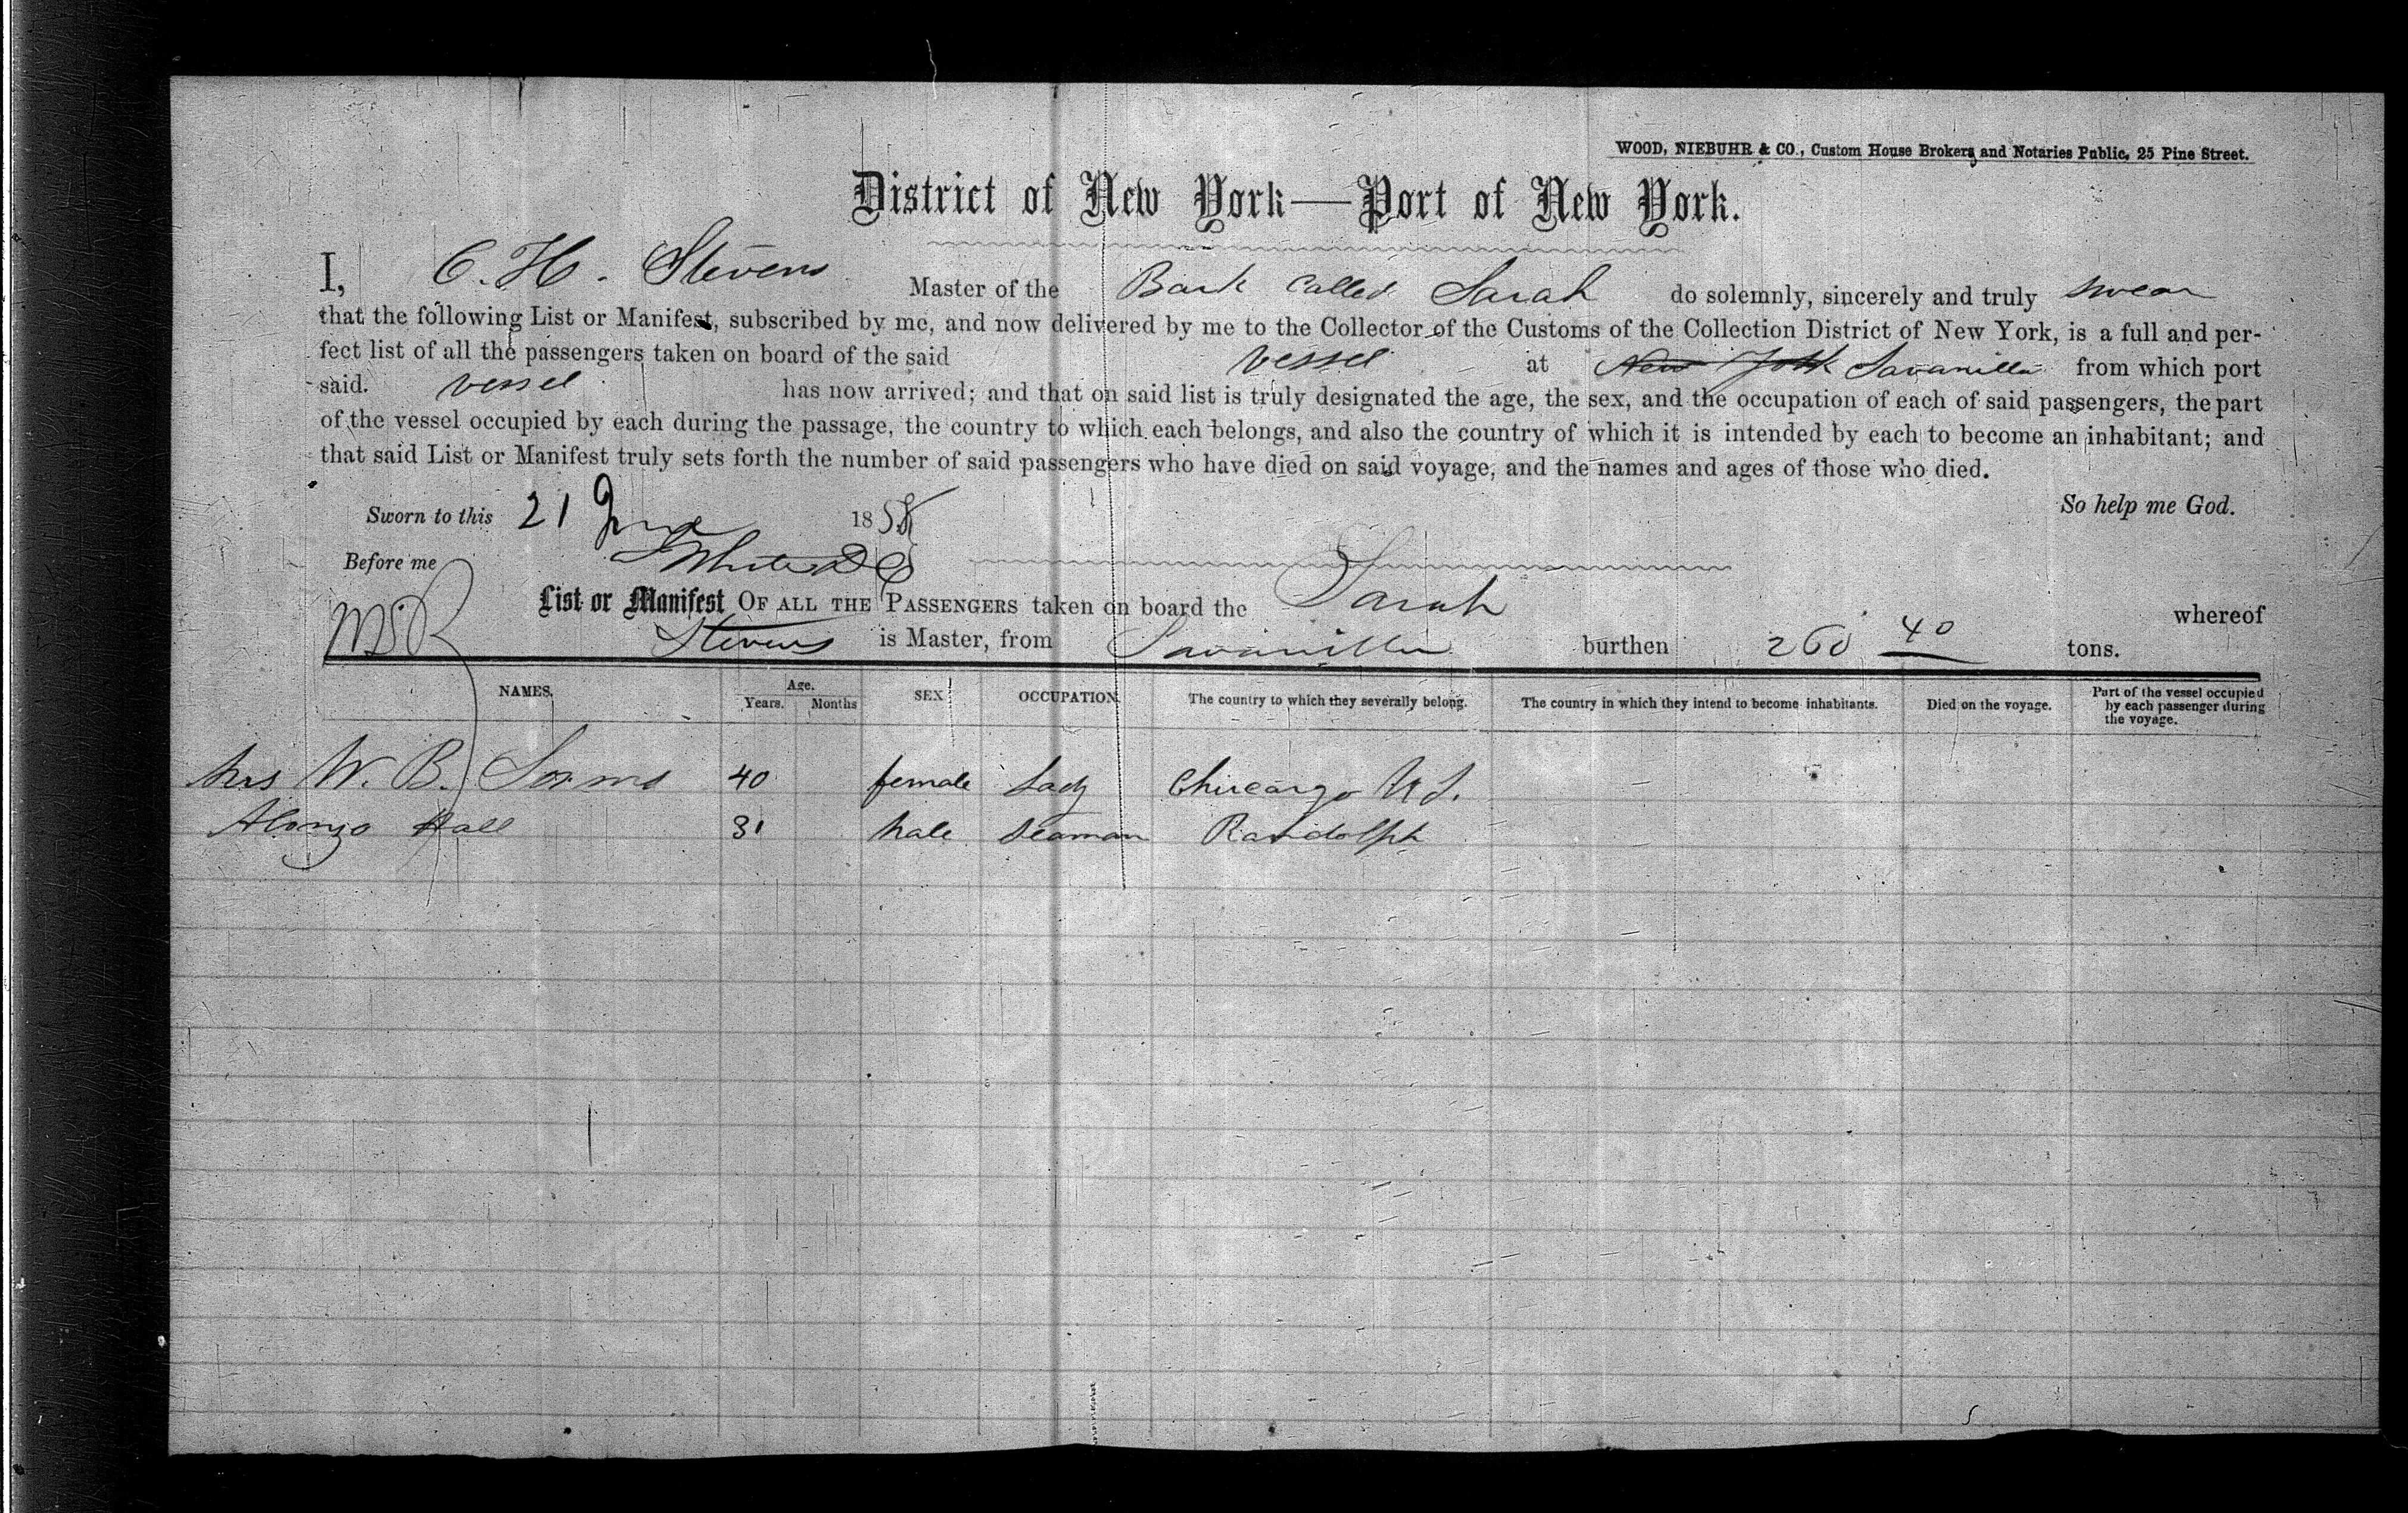 WOOD, NIEBUHR & CO., Custom House Brokers and Notaries Public, 25 Pine Street.
District of New York—Port of New York.
I, C. H. Stevens Master of the Bark Called Sarah do solemnly, sincerely and truly swear
that the following List or Manifest, subscribed by me, and now delivered by me to the Collector of the Customs of the Collection District of New York, is a full and per-
fect list of all the passengers taken on board of the said vessel at New York Savanilla from which port
said. vessel has now arrived; and that on said list is truly designated the age, the sex, and the occupation of each of said passengers, the part
of the vessel occupied by each during the passage, the country to which each belongs, and also the country of which it is intended by each to become an inhabitant; and
that said List or Manifest truly sets forth the number of said passengers who have died on said voyage, and the names and ages of those who died.
So help me God.
Sworn to this 21 June 1858
Before me
List or Manifest OF ALL THE PASSENGERS taken on board the Sarah whereof
Stevens is Master, from Savanilla burthen 260 40 tons.
NAMES. Age. Years. Months SEX OCCUPATION The country to which they severally belong. The country in which they intend to become inhabitants. Died on the voyage. Part of the vessel occupied by each passenger during the voyage.
Mrs W. B. 40 female Lady Chicargo U S.
Alonzo Hall 31 Male Seaman Randolph